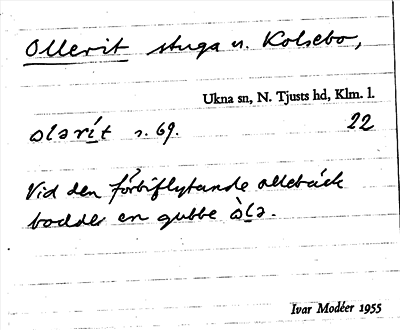 Ollerit stuga u. Kolsebo,
Ukna sn, N. Tjusts hd, Klm. l.
olərít s. 69. 22
Vid den förbiflytande ollebäck
bodde en gubbe òlə.
Ivar Modéer 1955